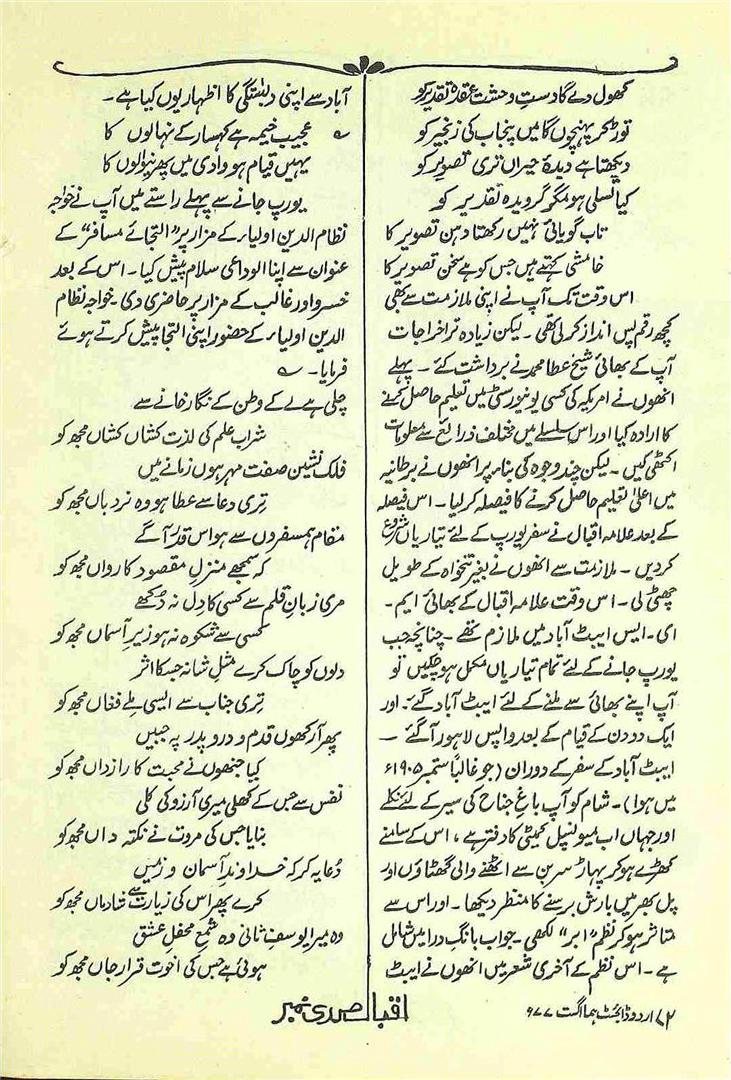 کھول دے گا دستِ وحشت عقدۂ تقدیر کو
توڑ کر پہنچوں گا میں پنجاب کی زنجیر کو
دیکھتا ہے دیدۂ حیراں تری تصویر کو
کیا تسلی ہو مگر گرویدہ تقدیر کو
تاب گویائی نہیں رکھتا دہن تصویر کا
خامشی کہتے ہیں جس کو ہے سخن تصویر کا
اس وقت تک آپ نے اپنی ملازمت سے بھی
کچھ رقم پس انداز کر لی تھی ۔ لیکن زیادہ تر اخراجات
آپ کے بھائی شیخ عطا محمد نے برداشت کئے ۔ پہلے
انھوں نے امریکہ کی کسی یونیورسٹی میں تعلیم حاصل کرنے
کا ارادہ کیا اور اس سلسلے میں مختلف ذرائع سے معلومات
اکٹھی کیں ۔ لیکن چند وجوہ کی بناء پر انھوں نے برطانیہ
میں اعلیٰ تعلیم حاصل کرنے کا فیصلہ کر لیا ۔ اس فیصلہ
کے بعد علامہ اقبال نے سفر یورپ کے لئے تیاریاں شروع
کر دیں ۔ ملازمت سے انھوں نے بغیر تنخواہ کے طویل
چھٹی لی ۔ اس وقت علامہ اقبال کے بھائی ایم ۔
ای ۔ ایس ایبٹ آباد میں ملازم تھے ۔ چنانچہ جب
یورپ جانے کے لئے تمام تیاریاں مکمل ہو چکیں تو
آپ اپنے بھائی سے ملنے کے لئے ایبٹ آباد گئے ۔ اور
ایک دو دن کے قیام کے بعد واپس لاہور آ گئے ۔
ایبٹ آباد کے سفر کے دوران (جو غالباً ستمبر ۱۹۰۵ء
میں ہوا) ۔ شام کو آپ باغِ جناح کی سیر کے لئے نکلے
اور جہاں اب میونسپل کمیٹی کا دفتر ہے ، اس کے سامنے
کھڑے ہو کر پہاڑ سربن سے اٹھنے والی گھٹاؤں اور
پل بھر میں بارش برسنے کا منظر دیکھا ۔ اور اس سے
متاثر ہو کر نظم "ابر" لکھی ۔ جو اب بانگِ درا میں شامل
ہے ۔ اس نظم کے آخری شعر میں انھوں نے ایبٹ
آباد سے اپنی دلبستگی کا اظہار یوں کیا ہے ۔
؎ عجیب خیمہ ہے کہسار کے نہالوں کا
یہیں قیام ہو وادی میں پھرنیوالوں کا
یورپ جانے سے پہلے راستے میں آپ نے خواجہ
نظام الدین اولیاء کے مزار پر "التجائے مسافر" کے
عنوان سے اپنا الوداعی سلام پیش کیا ۔ اس کے بعد
خسرو اور غالب کے مزار پر حاضری دی ۔ خواجہ نظام
الدین اولیاء کے حضور اپنی التجا پیش کرتے ہوئے
فرمایا ۔ ؎
چلی ہے لے کے وطن کے نگار خانے سے
شراب علم کی لذت کشاں کشاں مجھ کو
فلک نشین صفت مہر ہوں زمانے میں
تری دعا سے عطا ہو وہ نردباں مجھ کو
مقام ہمسفروں سے ہو اس قدر آگے
کہ سمجھے منزلِ مقصود کارواں مجھ کو
مری زبانِ قلم سے کسی کا دل نہ دُکھے
کسی سے شکوہ نہ ہو زیرِ آسماں مجھ کو
دلوں کو چاک کرے مثلِ شانہ جس کا اثر
تری جناب سے ایسی ملے فغاں مجھ کو
پھر آ رکھوں قدم و در و پدر پہ جبیں
کیا جنھوں نے محبت کا رازداں مجھ کو
نفس سے جس کے کھلی میری آرزو کی کلی
بنایا جس کی مروت نے نکتہ داں مجھ کو
دُعا یہ کر کہ خداوندِ آسمان و زمیں
کرے پھر اس کی زیارت سے شادماں مجھ کو
وہ میرا یوسف ثانی وہ شمع محفلِ عشق
ہوئی ہے جس کی اخوت قرارِ جاں مجھ کو
۷۲ اردو ڈائجسٹ ہما اگست ۷۷ء
اقبال صدی نمبر